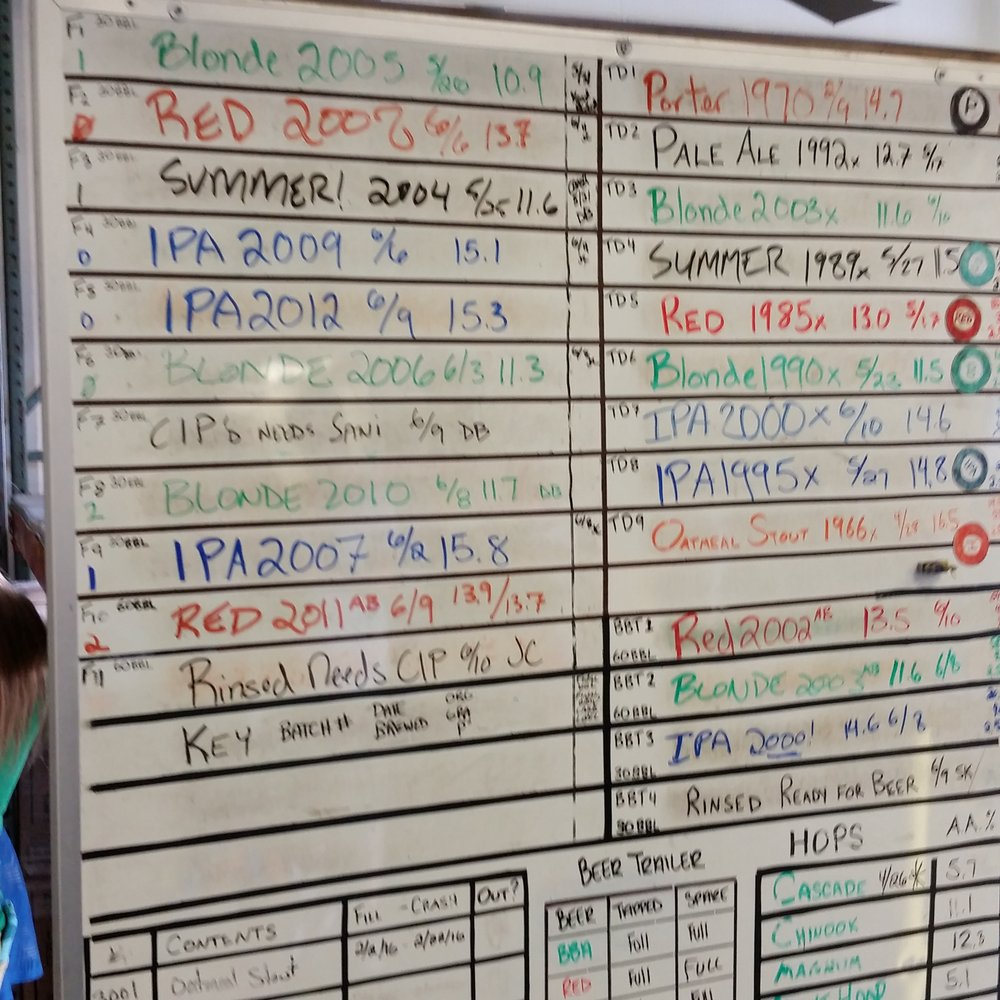 F1 30BBL Blonde 2005 5/20 10.9
1
F2 30BBL RED 2002 6/6 13.7
F3 30BBL SUMMER! 2004 5/25 11.6
1
F4 30BBL IPA 2009 6/6 15.1
0
F5 30BBL IPA 2012 6/9 15.3
0
F6 BLONDE 2006 6/3 11.3
F7 30BBL CIP'd NEEDS SANI 6/9 DB
F8 30BBL BLONDE 2010 6/8 11.7 DB
2
F9 30BBL IPA 2007 6/2 15.8
1
F10 60BBL RED 2011 AB 6/9 13.9/13.7
2
F11 60BBL Rinsed Needs CIP 6/10 JC
KEY BATCH # DATE BREWED ORG GRA P
TD1 Porter 1970 5/9 14.7 P
TD2 PALE ALE 1992x 12.7 5/17
TD3 Blonde 2003x 11.6 6/10
TD4 SUMMER 1989x 5/27 11.5
TD5 RED 1985x 13.0 5/17 RED
TD6 Blonde 1990x 5/23 11.5 B
TD7 IPA 2000x 6/10 14.6
TD8 IPA 1995x 5/27 14.8
TD9 OATMEAL STOUT 1966x 4/28 16.5
BBT1 60BBL Red 2002 AB 13.5 6/10
BBT2 60BBL BLONDE 2003 AB 11.6 6/8
BBT3 30BBL IPA 2000! 14.6 6/8
BBT4 30BBL RINSED READY FOR BEER 6/9 SK
CONTENTS FILL - CRASH OUT?
3001 Oatmeal Stout 2/2/16 - 2/22/16
BEER TRAILER
BEER TAPPED SPARE
BBA Full Full
RED Full FULL
HOPS A.A.%
CASCADE 4/26 5.7
CHINOOK 11.1
MAGNUM 12.3
5.1